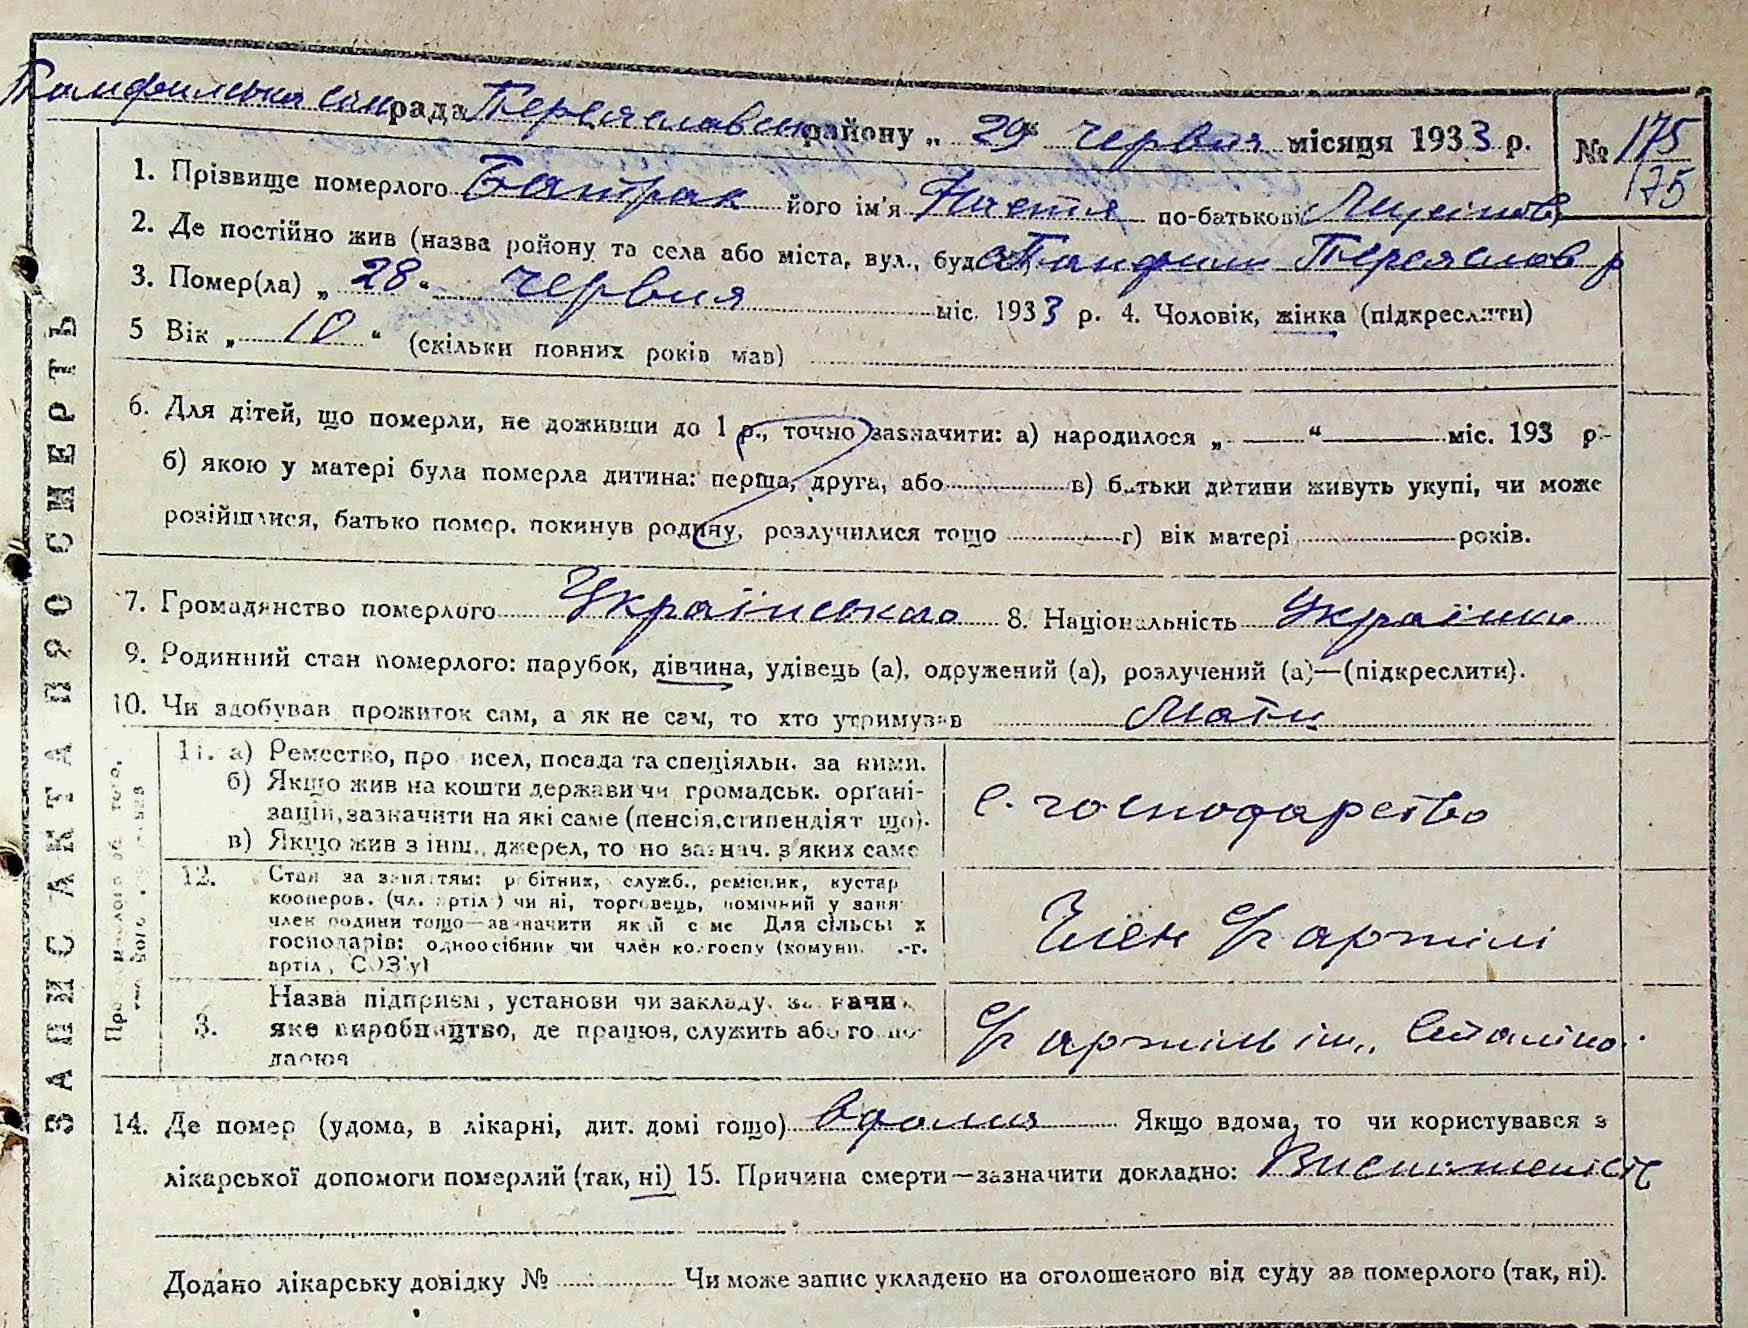 Памфильська сіл рада Переяславськ району „ 29 “ червня місяця 1933 р. № 175
175
1. Прізвище померлого Батрак його ім'я Настя по-батькові
2. Де постійно жив (назва району та села або міста, вул., буд. с. Панфили Переяслов р
3. Помер(ла) „ 28 “ червня міс. 1933 р. 4. Чоловік, жінка (підкреслити)
5 Вік „ 10 “ (скільки повних років мав)
6. Для дітей, що померли, не доживши до 1 р., точно зазначити: а) народилося „ “ міс. 193 р-
б) якою у матері була померла дитина: перша, друга, або в) батьки дитини живуть укупі, чи може
розійшлися, батько помер, покинув родину, розлучилися тощо г) вік матері років.
7. Громадянство померлого Українського 8. Національність Українка
9. Родинний стан померлого: парубок, дівчина, удівець (а), одружений (а), розлучений (а)—(підкреслити).
10. Чи здобував прожиток сам, а як не сам, то хто утримував Мати
11. а) Ремество, промисел, посада та спеціяльн. за ними.
б) Якщо жив на кошти держави чи громадськ. орґані-
зацій, зазначити на які саме (пенсія, стипендіят що).
в) Якщо жив з інш. джерел, то но зазнач. з яких саме
с. господарство
12. Стан за заняттям: робітник, служб., ремісник, кустар
кооперов. (чл. артіл ) чи ні, торговець, помічний у заня
член родини тощо—зазначити який саме Для сільськ х
господарів: одноосібник чи член колгоспу (комуни, -г.
артіл, СОЗ'у)
Член с/г артілі
3. Назва підприєм, установи чи закладу, зазначи
яке виробництво, де працюв, служить або го по-
дарюв
С/г артіль ім. Сталіна
14. Де помер (удома, в лікарні, дит. домі тощо) вдома Якщо вдома, то чи користувався з
лікарської допомоги померлий (так, ні) 15. Причина смерти—зазначити докладно: Виснаженість
Додано лікарську довідку № Чи може запис укладено на оголошеного від суду за померлого (так, ні).
ЗАПИС АКТА ПРО СМЕРТЬ